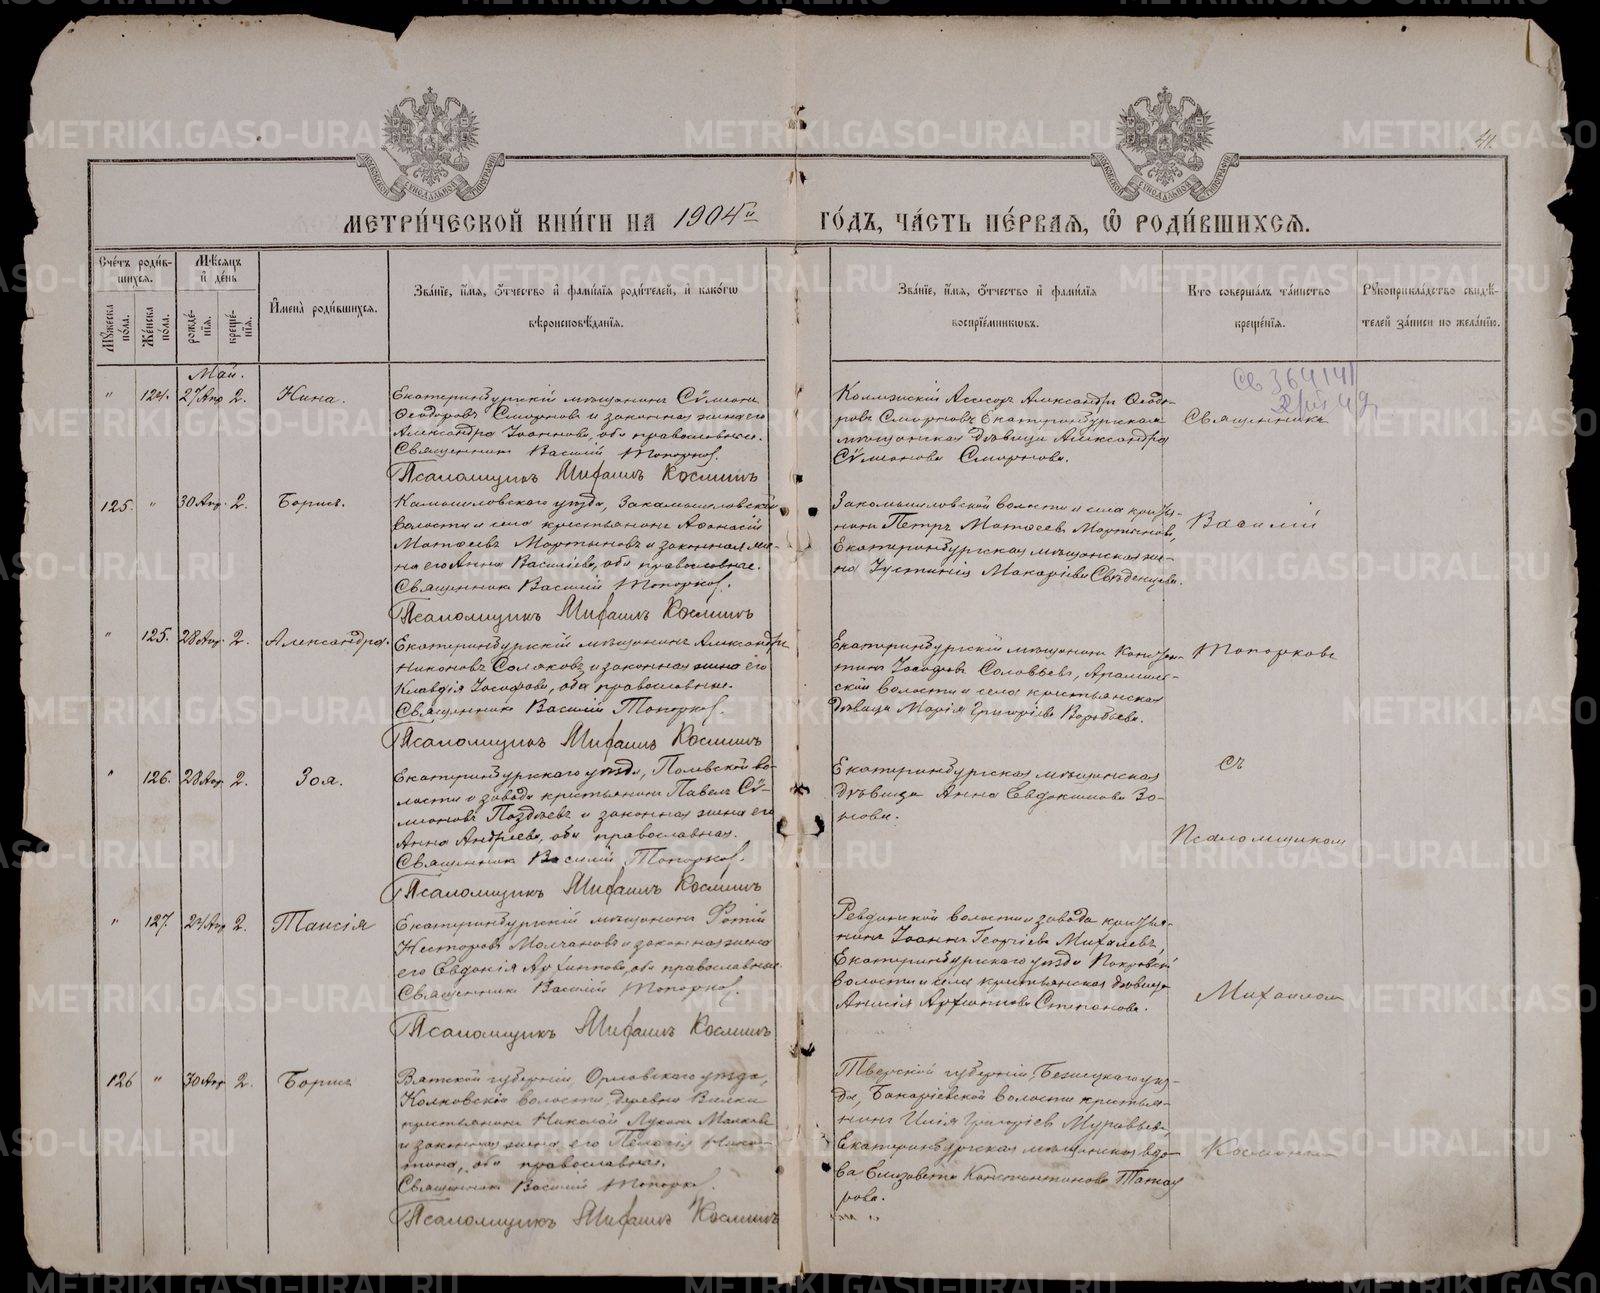 41.
МЕТРИ́ЧЕСКОЙ КНИ́ГИ НА 1904й ГО́ДЪ, ЧА́СТЬ ПЕ́РВАЯ, Ѽ РОДИ́ВШИХСѦ.
Сче́тъ роди́вшихсѧ.
Мꙋ́жеска по́ла.
Же́нска по́ла.
Мѣ́сѧцъ и҆ де́нь
рожде́нїѧ.
креще́нїѧ.
И҆мена̀ роди́вшихсѧ.
Зва́нїе, и҆́мѧ, ѻ҆́тчество и҆ фами́лїѧ роди́телей, и҆ како́гѡ
вѣроисповѣ́данїѧ.
Зва́нїе, и҆́мѧ, ѻ҆́тчество и҆ фами́лїѧ
воспрїе́мникѡвъ.
Кто̀ соверша́лъ та́инство
креще́нїѧ.
Рꙋкоприкла́дство свидѣ́-
телей за́писи по жела́нїю.
Май.
" 124. 27 Апр 2. Нина.
Екатеринбургскій мѣщанинъ Сѵмеонъ
Ѳеодоровъ Смирновъ и законная жена его
Александра Іоаннова, оба православные.
Священникъ Василій Топорковъ.
Псаломщикъ Михаилъ Косминъ
Коллежскій Асессоръ Александръ Ѳеодо-
ровъ Смирновъ, Екатеринбургская
мѣщанская дѣвица Александра
Сѵмеонова Смирнова.
Священникъ
125. " 30 Апр. 2. Борисъ.
Камышловскаго уѣзда, Закамышловской
волости и села крестьянинъ Аѳанасій
Матѳеевъ Мартыновъ и законная же-
на его Анна Васильева, оба православные.
Священникъ Василій Топорковъ.
Псаломщикъ Михаилъ Косминъ
Закамышловской волости и села крестья-
нинъ Петръ Матѳеевъ Мартыновъ,
Екатеринбургская мѣщанская же-
на Іустинія Макаріева
Василій
" 125. 28 Апр. 2. Александра.
Екатеринбургскій мѣщанинъ Александръ
Никоновъ и законная жена его
Клавдія Іосифова, оба православные.
Священникъ Василій Топорковъ.
Псаломщикъ Михаилъ Косминъ
Екатеринбургскій мѣщанинъ Констан-
тинъ Іосифовъ Соловьевъ, Арамиль-
ской волости и села крестьянская
дѣвица Марія Григоріева Воробьева.
Топорковъ
" 126. 28 Апр. 2. Зоя.
Екатеринбургскаго уѣзда, Полевской во-
лости и завода крестьянинъ Павелъ Сѵ-
меоновъ Поздѣевъ и законная жена его
Анна Андреева, оба православная.
Священникъ Василій Топорковъ.
Псаломщикъ Михаилъ Косминъ
Екатеринбургская мѣщанская
дѣвица Анна Евдокимова Зо-
нова.
съ
Псаломщикомъ
" 127. 24 Апр 2. Таисія
Екатеринбургскій мѣщанинъ Фотій
Несторовъ Молчановъ и законная жена
его Евдокія Архиппова, оба православные.
Священникъ Василій Топорковъ.
Псаломщикъ Михаилъ Косминъ
Ревдинской волости и завода крестья-
нинъ Іоаннъ Георгіевъ Михалевъ,
Екатеринбургскаго уѣзда Покровской
волости и села крестьянская дѣвица
Анисія Архиппова Степанова.
Михаиломъ
126 " 30 Апр 2. Борисъ
Вятской губерніи, Орловскаго уѣзда,
волости, деревни
крестьянинъ Николай Лукинъ
и законная жена его Пелагія Ники-
тина, оба православная.
Священникъ Василій Топорковъ.
Псаломщикъ Михаилъ Косминъ
Тверской губерніи, Бежецкаго уѣз-
да, волости крестья-
нинъ Илія Григоріевъ Муравьевъ,
Екатеринбургская мѣщанская вдо-
ва Елизавета Константинова Тата-
рова.
Косминымъ
METRIKI.GASO-URAL.RU